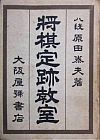 八段 原田泰夫著
将棋定跡教室
大阪屋號書店